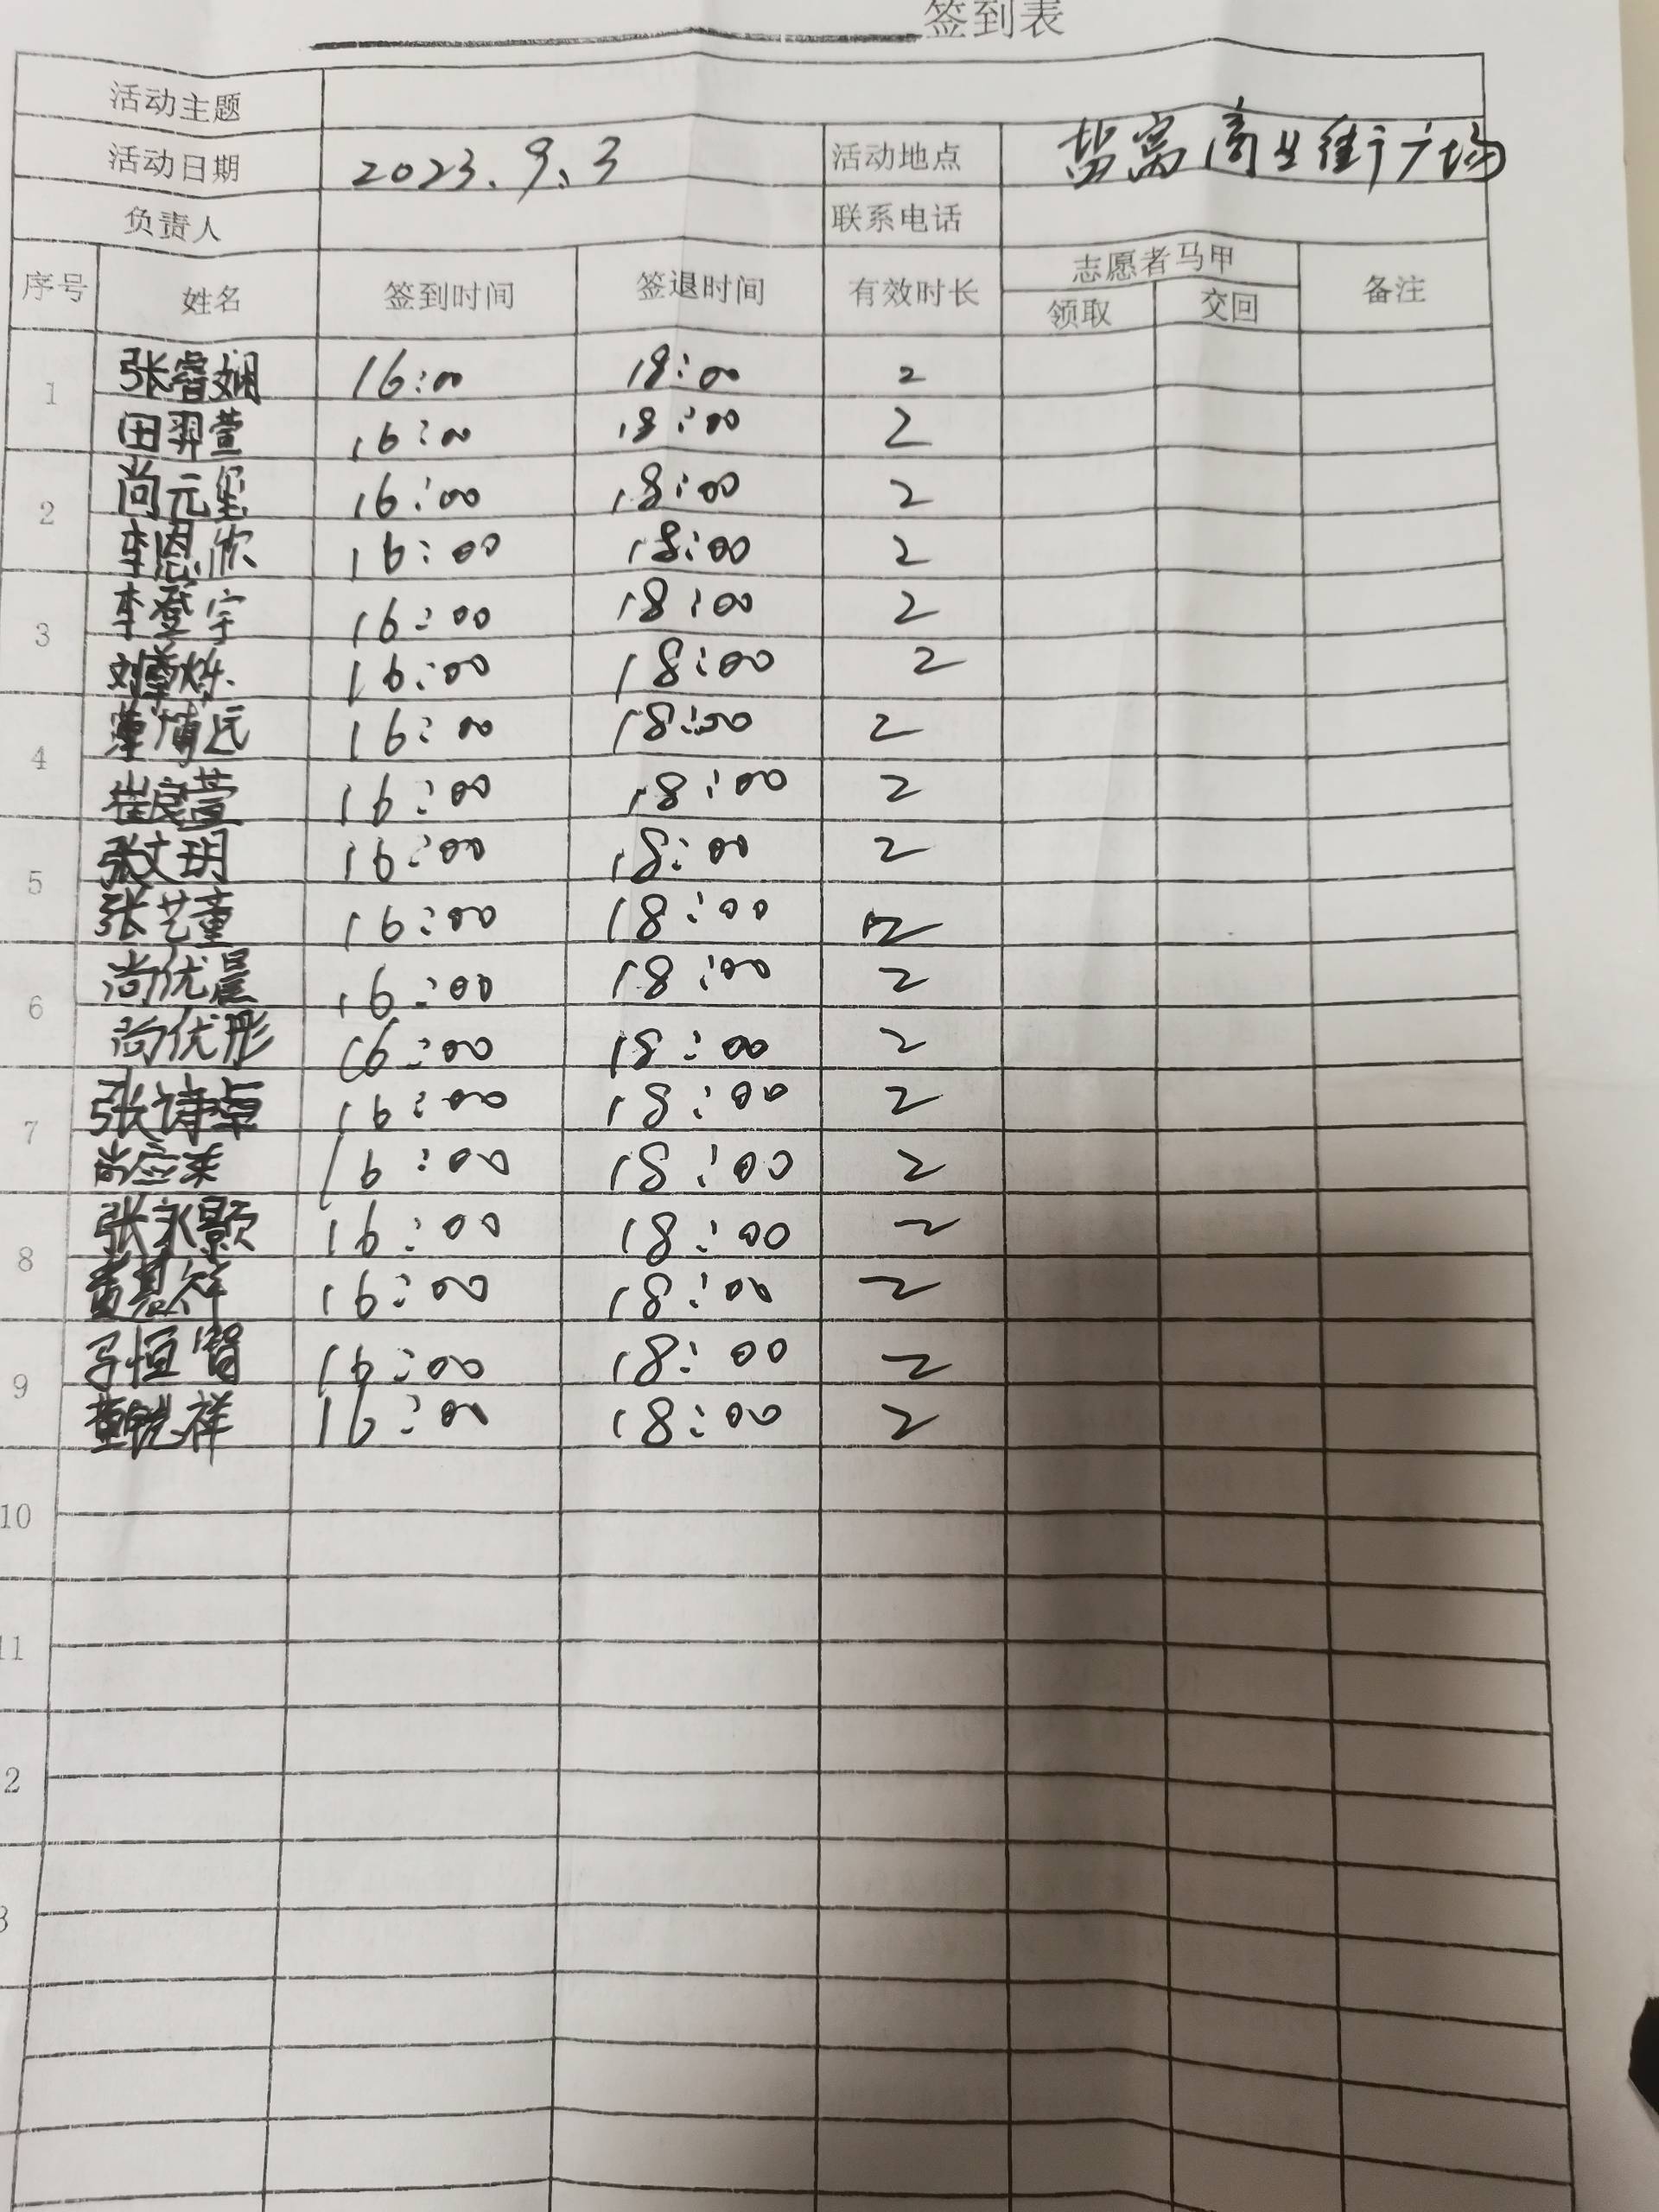 签到表
活动主题
活动日期 2023.9.3 活动地点 盐窝商业街广场
负责人 联系电话
序号 姓名 签到时间 签退时间 有效时长 志愿者马甲 备注
领取 交回
1 张睿娴 16:00 18:00 2
田羿萱 16:00 18:00 2
2 尚元玺 16:00 18:00 2
李恩欣 16:00 18:00 2
3 李登宇 16:00 18:00 2
16:00 18:00 2
4 董慎远 16:00 18:00 2
16:00 18:00 2
5 张文玥 16:00 18:00 2
张艺董 16:00 18:00 2
6 尚优晨 16:00 18:00 2
尚优彤 16:00 18:00 2
7 张诗卓 16:00 18:00 2
16:00 18:00 2
8 张永颢 16:00 18:00 2
16:00 18:00 2
9 恒智 16:00 18:00 2
董锐祥 16:00 18:00 2
10
11
2
3